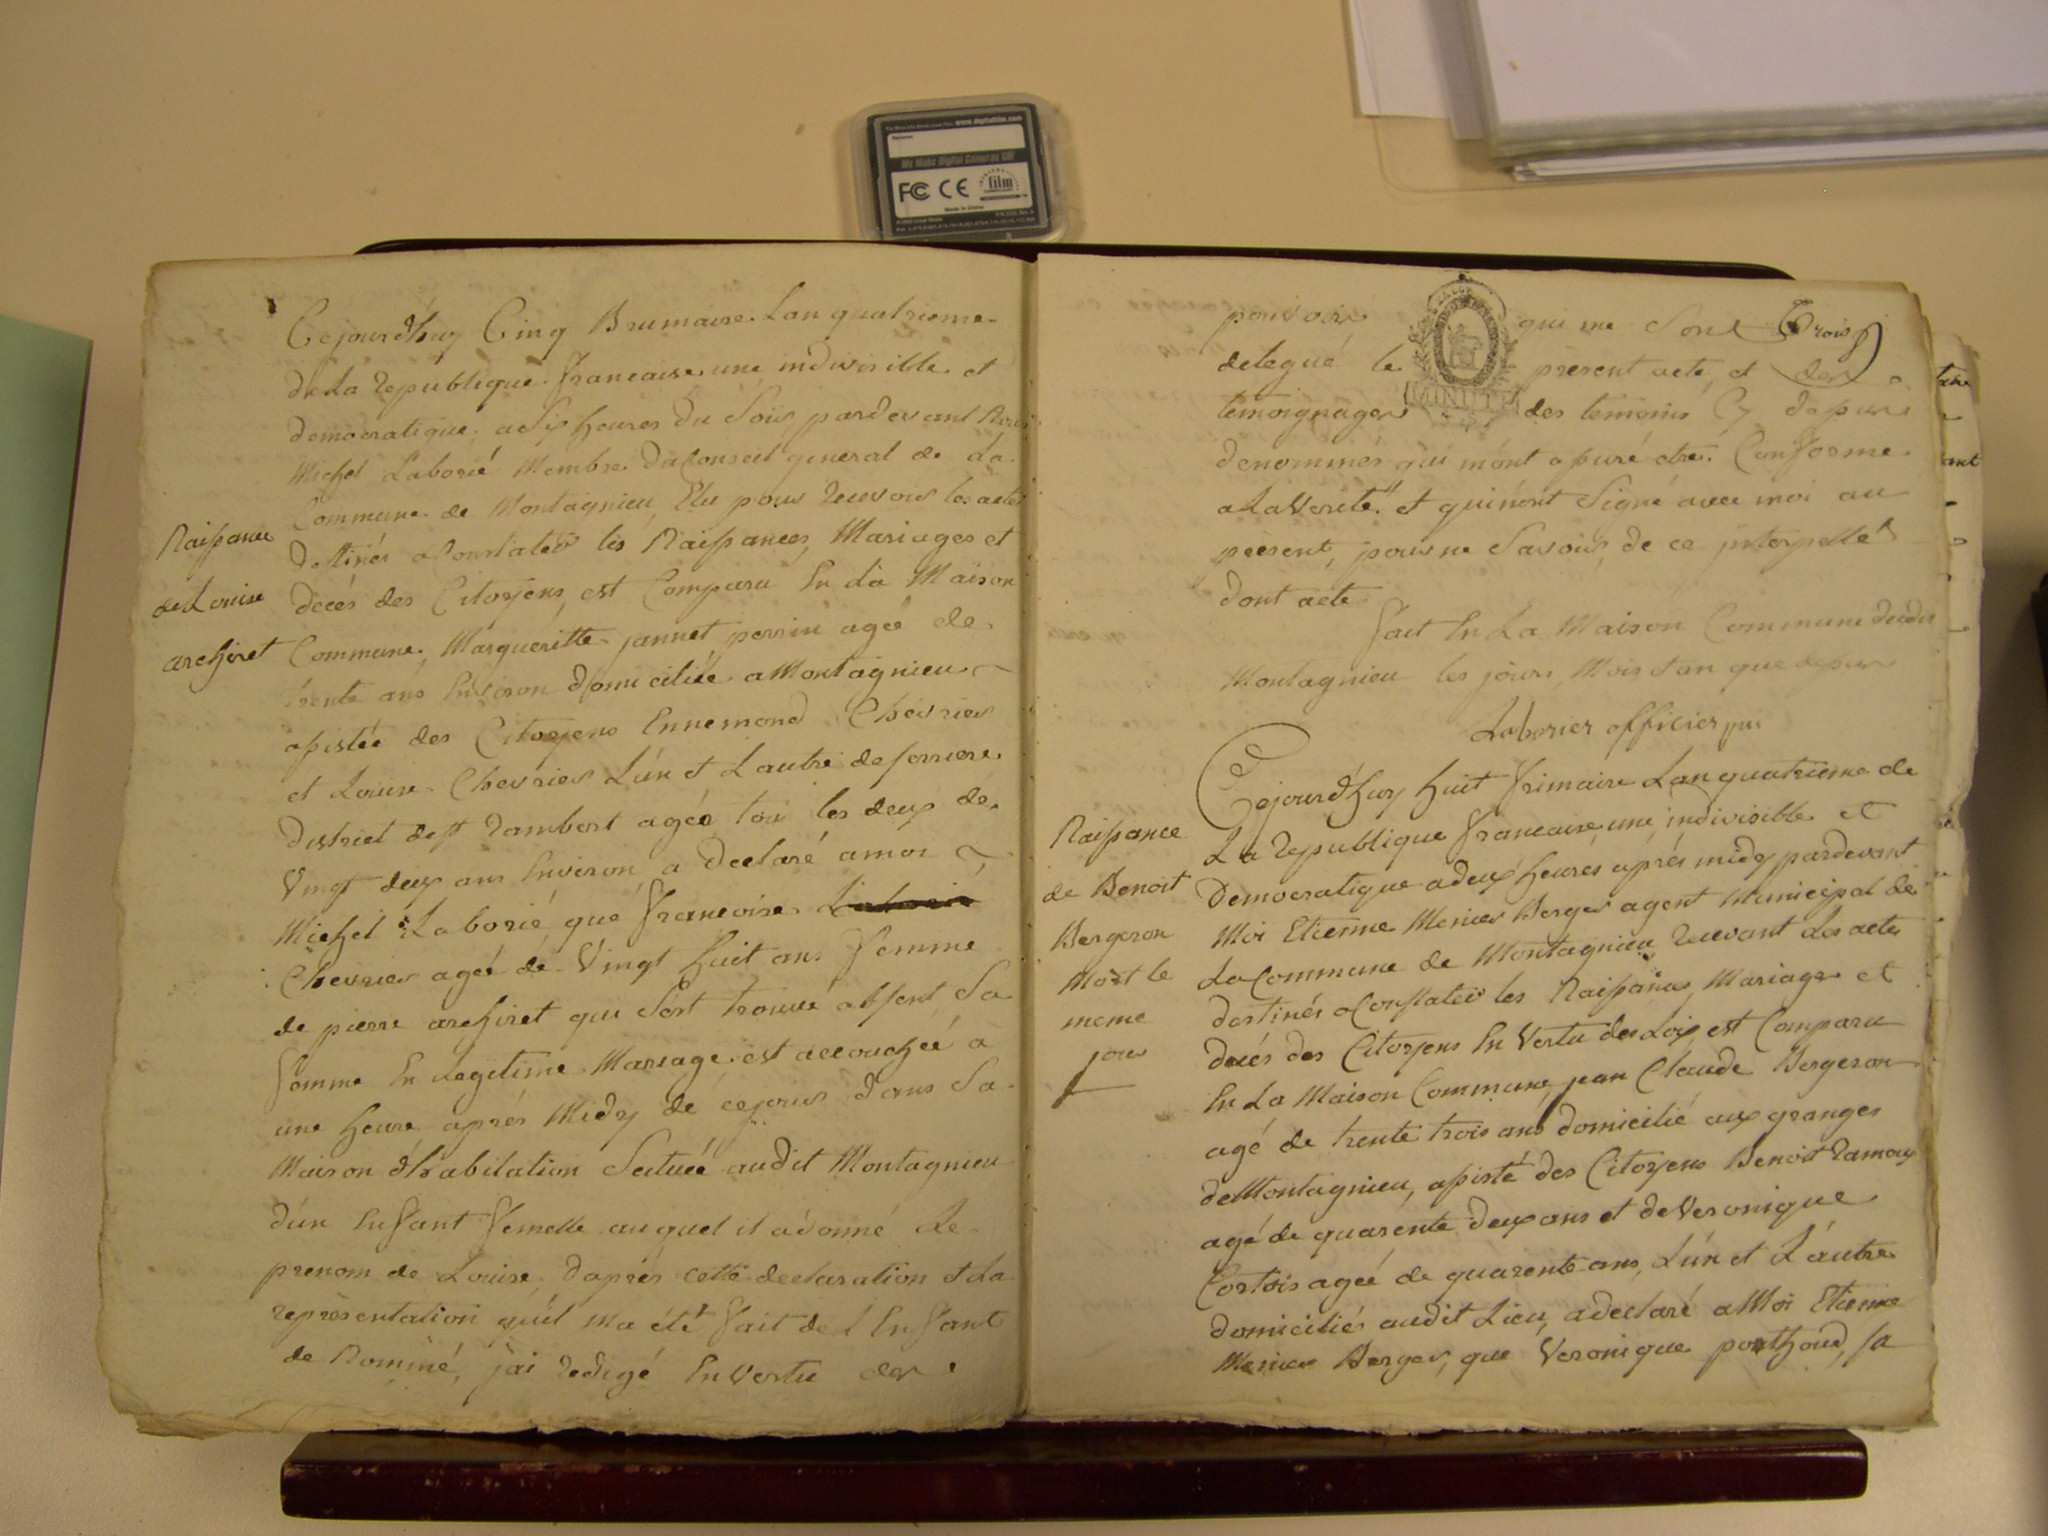 www.digitalfilm.com
We Make Digital Cameras GO!
FC CE film
Made in China
Naissance
de Louise
archiret
Cejourd'huy Cinq Brumaire Lan quatrieme
de La republique francaise une indivisible et
democratique, a Six heures du Soir pardevant Nous
Michel Laborié Membre du Conseil general de La
Commune de Montagnieu Elu pour recevoir les actes
destinés a Constater les Naissances, Mariages et
décés des Citoyens, est Comparu En La Maison
Commune, Margueritte jannet perrin agée de
trente ans Environ domiciliée a Montagnieu
assistée des Citoyens Ennemond Chevrier
et Louise Chevrier L'un et L'autre de serriere
District de st rambert agés tous les deux de
Vingt deux ans Environ a declaré a moi
Michel Laborié que Francoise
Chevrier agée de Vingt huit ans femme
de pierre archiret qui S'est trouvé absent, Sa
femme En Legitime Mariage est accouchée a
une heure aprés Midy de cejour dans Sa
Maison d'habitation Scituée audit Montagnieu
d'un Enfant femelle auquel il a donné Le
prenom de Louise, d'aprés cette declaration et La
représentation qu'il ma été fait de l'Enfant
de Nommé, j'ai redigé En Vertu des
pouvoirs qui me Sont Trois
delegué le présent acte, et des
MINUTE
temoignages des temoins Cy depur
denommés qui m'ont assuré etre Conforme
a La Verité et qui n'ont Signé avec moi au
present, pour ne Savoir, de ce interpellé
dont acte
fait En La Maison Commune dudit
Montagnieu les jours, Mois et an que depur
Laborier officier pu
Naissance
de Benoit
Bergeron
Mort le
meme
jour
Cejourd'huy huit frimaire Lan quatrieme de
La republique francaise une, indivisible et
Democratique a deux heures aprés midy pardevant
Moi Etienne Menier Berger agent Municipal de
La Commune de Montagnieu recevant Les actes
destinés a Constater les Naissances, Mariage et
décés des Citoyens En Vertu des Loix, est Comparu
En La Maison Commune, jean Claude Bergeron
agé de trente trois ans domicilié aux granges
de Montagnieu, assisté des Citoyens Benoit ramoux
agé de quarente deux ans et de Veronique
Cortois agée de quarente ans, L'un et L'autre
domiciliés audit Lieu, a declaré a Moi Etienne
Menier Berger, que Veronique ponthoud, sa